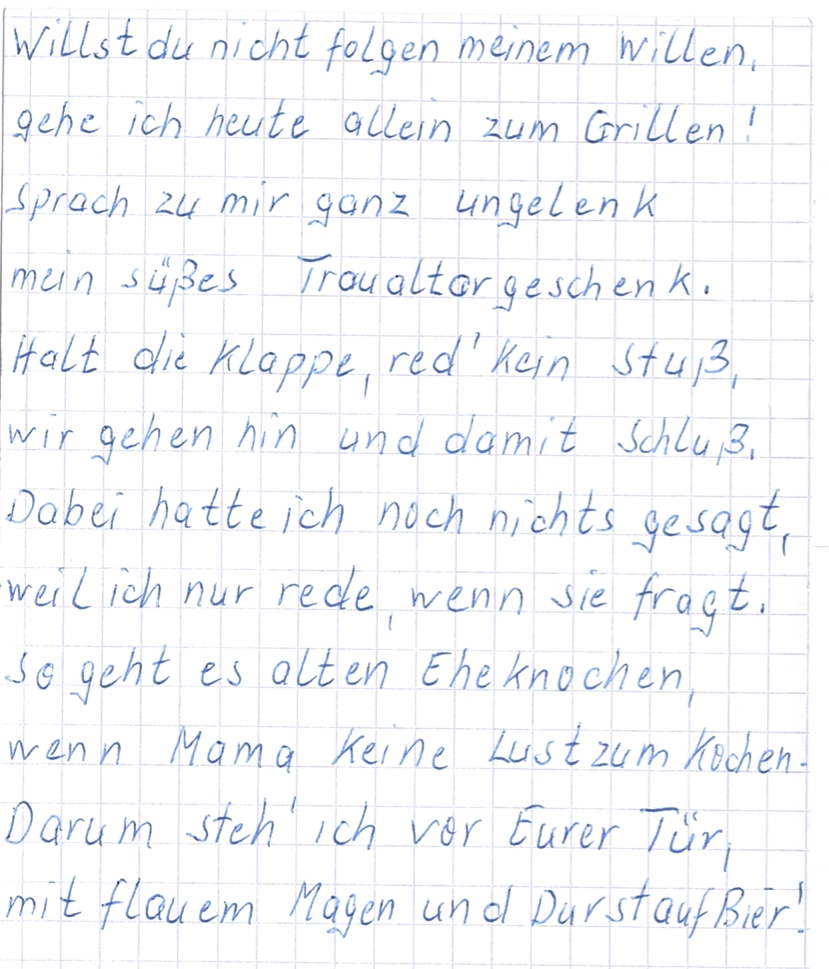 Willst du nicht folgen meinem Willen,
gehe ich heute allein zum Grillen!
Sprach zu mir ganz ungelenk
mein süßes Traualtargeschenk.
Halt die Klappe, red' kein Stuß,
wir gehen hin und damit Schluß.
Dabei hatte ich noch nichts gesagt,
weil ich nur rede, wenn sie fragt.
So geht es alten Eheknochen,
wenn Mama keine Lust zum Kochen.
Darum steh' ich vor Eurer Tür,
mit flauem Magen und Durst auf Bier!